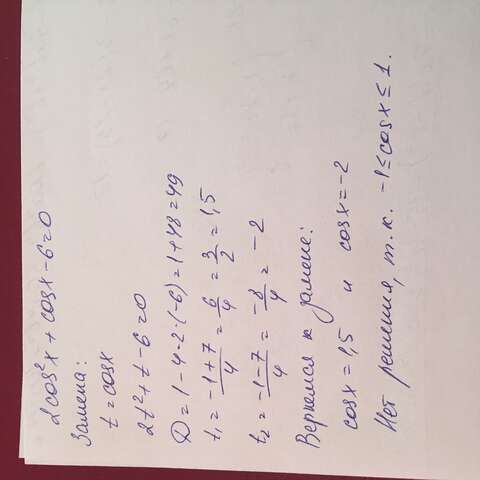 2cos²x + cosx - 6 = 0
Замена:
t = cosx
2t² + t - 6 = 0
D = 1 - 4·2·(-6) = 1 + 48 = 49
t₁ = (-1+7)/4 = 6/4 = 3/2 = 1,5
t₂ = (-1-7)/4 = -8/4 = -2
Вернемся к замене:
cosx = 1,5 и cosx = -2
Нет решения, т.к. -1 ≤ cosx ≤ 1.